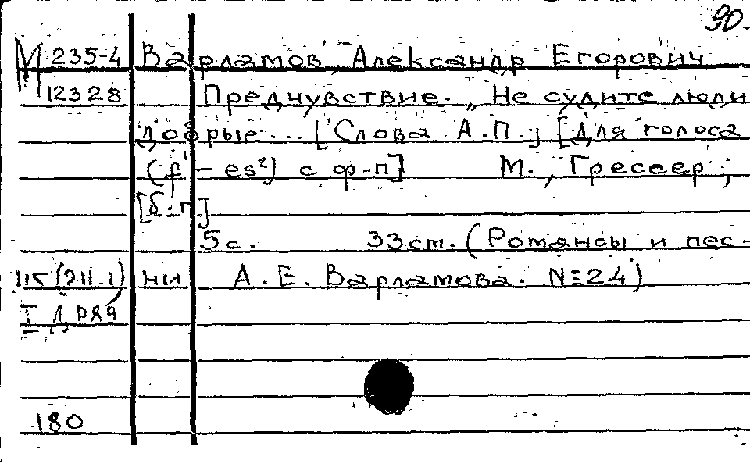 90.
М 235-4 Варламов, Александр Егорович
12328 Предчувствие. "Не судите люди
добрые... [Слова А.П.] [Для голоса
(f' - es²) с ф-п] М., Грессер,
[б.г.]
5с. 33см. (Романсы и пес-
115(211.1) ни А. Е. Варламова. №24)
180